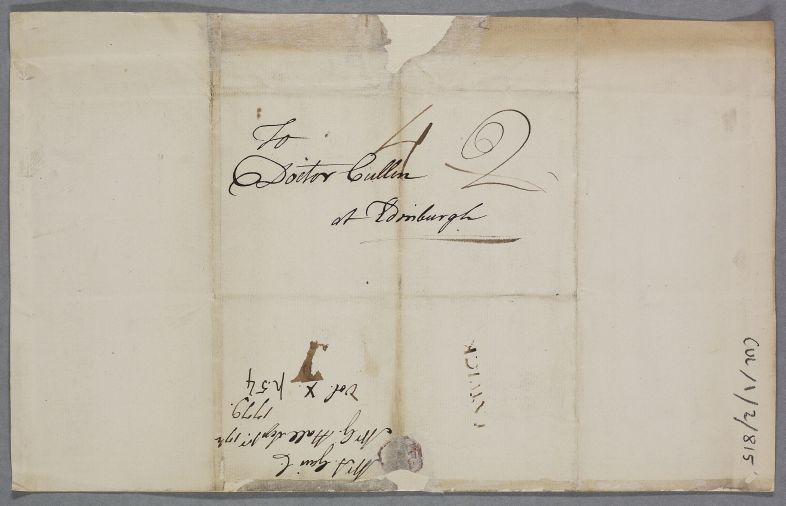 To
Doctor Cullen
at Edinburgh
4
2
Mr. G. Hall Sepr.
1779.
Vol. X p.54
CUL/1/2/815